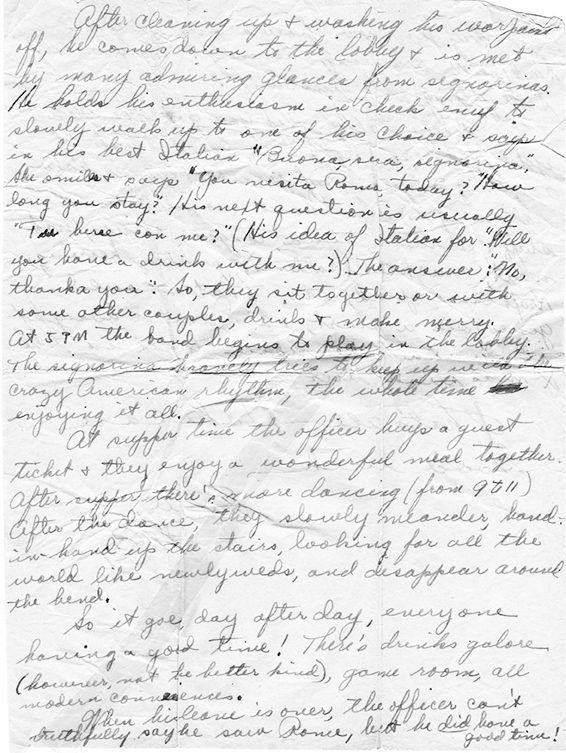 After cleaning up & washing his war paint
off, he comes down to the lobby & is met
by many admiring glances from signorinas.
He holds his enthusiasm in check enuf to
slowly walk up to one of his choice & says
in his best Italian "Buona sera, signorina".
She smiles & says "You visita Roma, today? "How
long you stay?" His next question is usually
"Tu bere con me?" (His idea of Italian for "Will
you have a drink with me?). The answer: "No,
thanka you". So, they sit together or with
some other couples, drink & make merry.
At 5 PM the band begins to play in the lobby.
The signorina bravely tries to keep up with the
crazy American rhythm, the whole time
enjoying it all.
At supper time the officer buys a guest
ticket & they enjoy a wonderful meal together.
After supper there's more dancing (from 9 to 11)
After the dance, they slowly meander, hand-
in-hand up the stairs, looking for all the
world like newlyweds, and disappear around
the bend.
So it goes, day after day, everyone
having a good time! There's drinks galore
(however, not the better kind), game room, all
modern conveniences.
When his leave is over, the officer can't
truthfully say he saw Rome, but he did have a
good time!